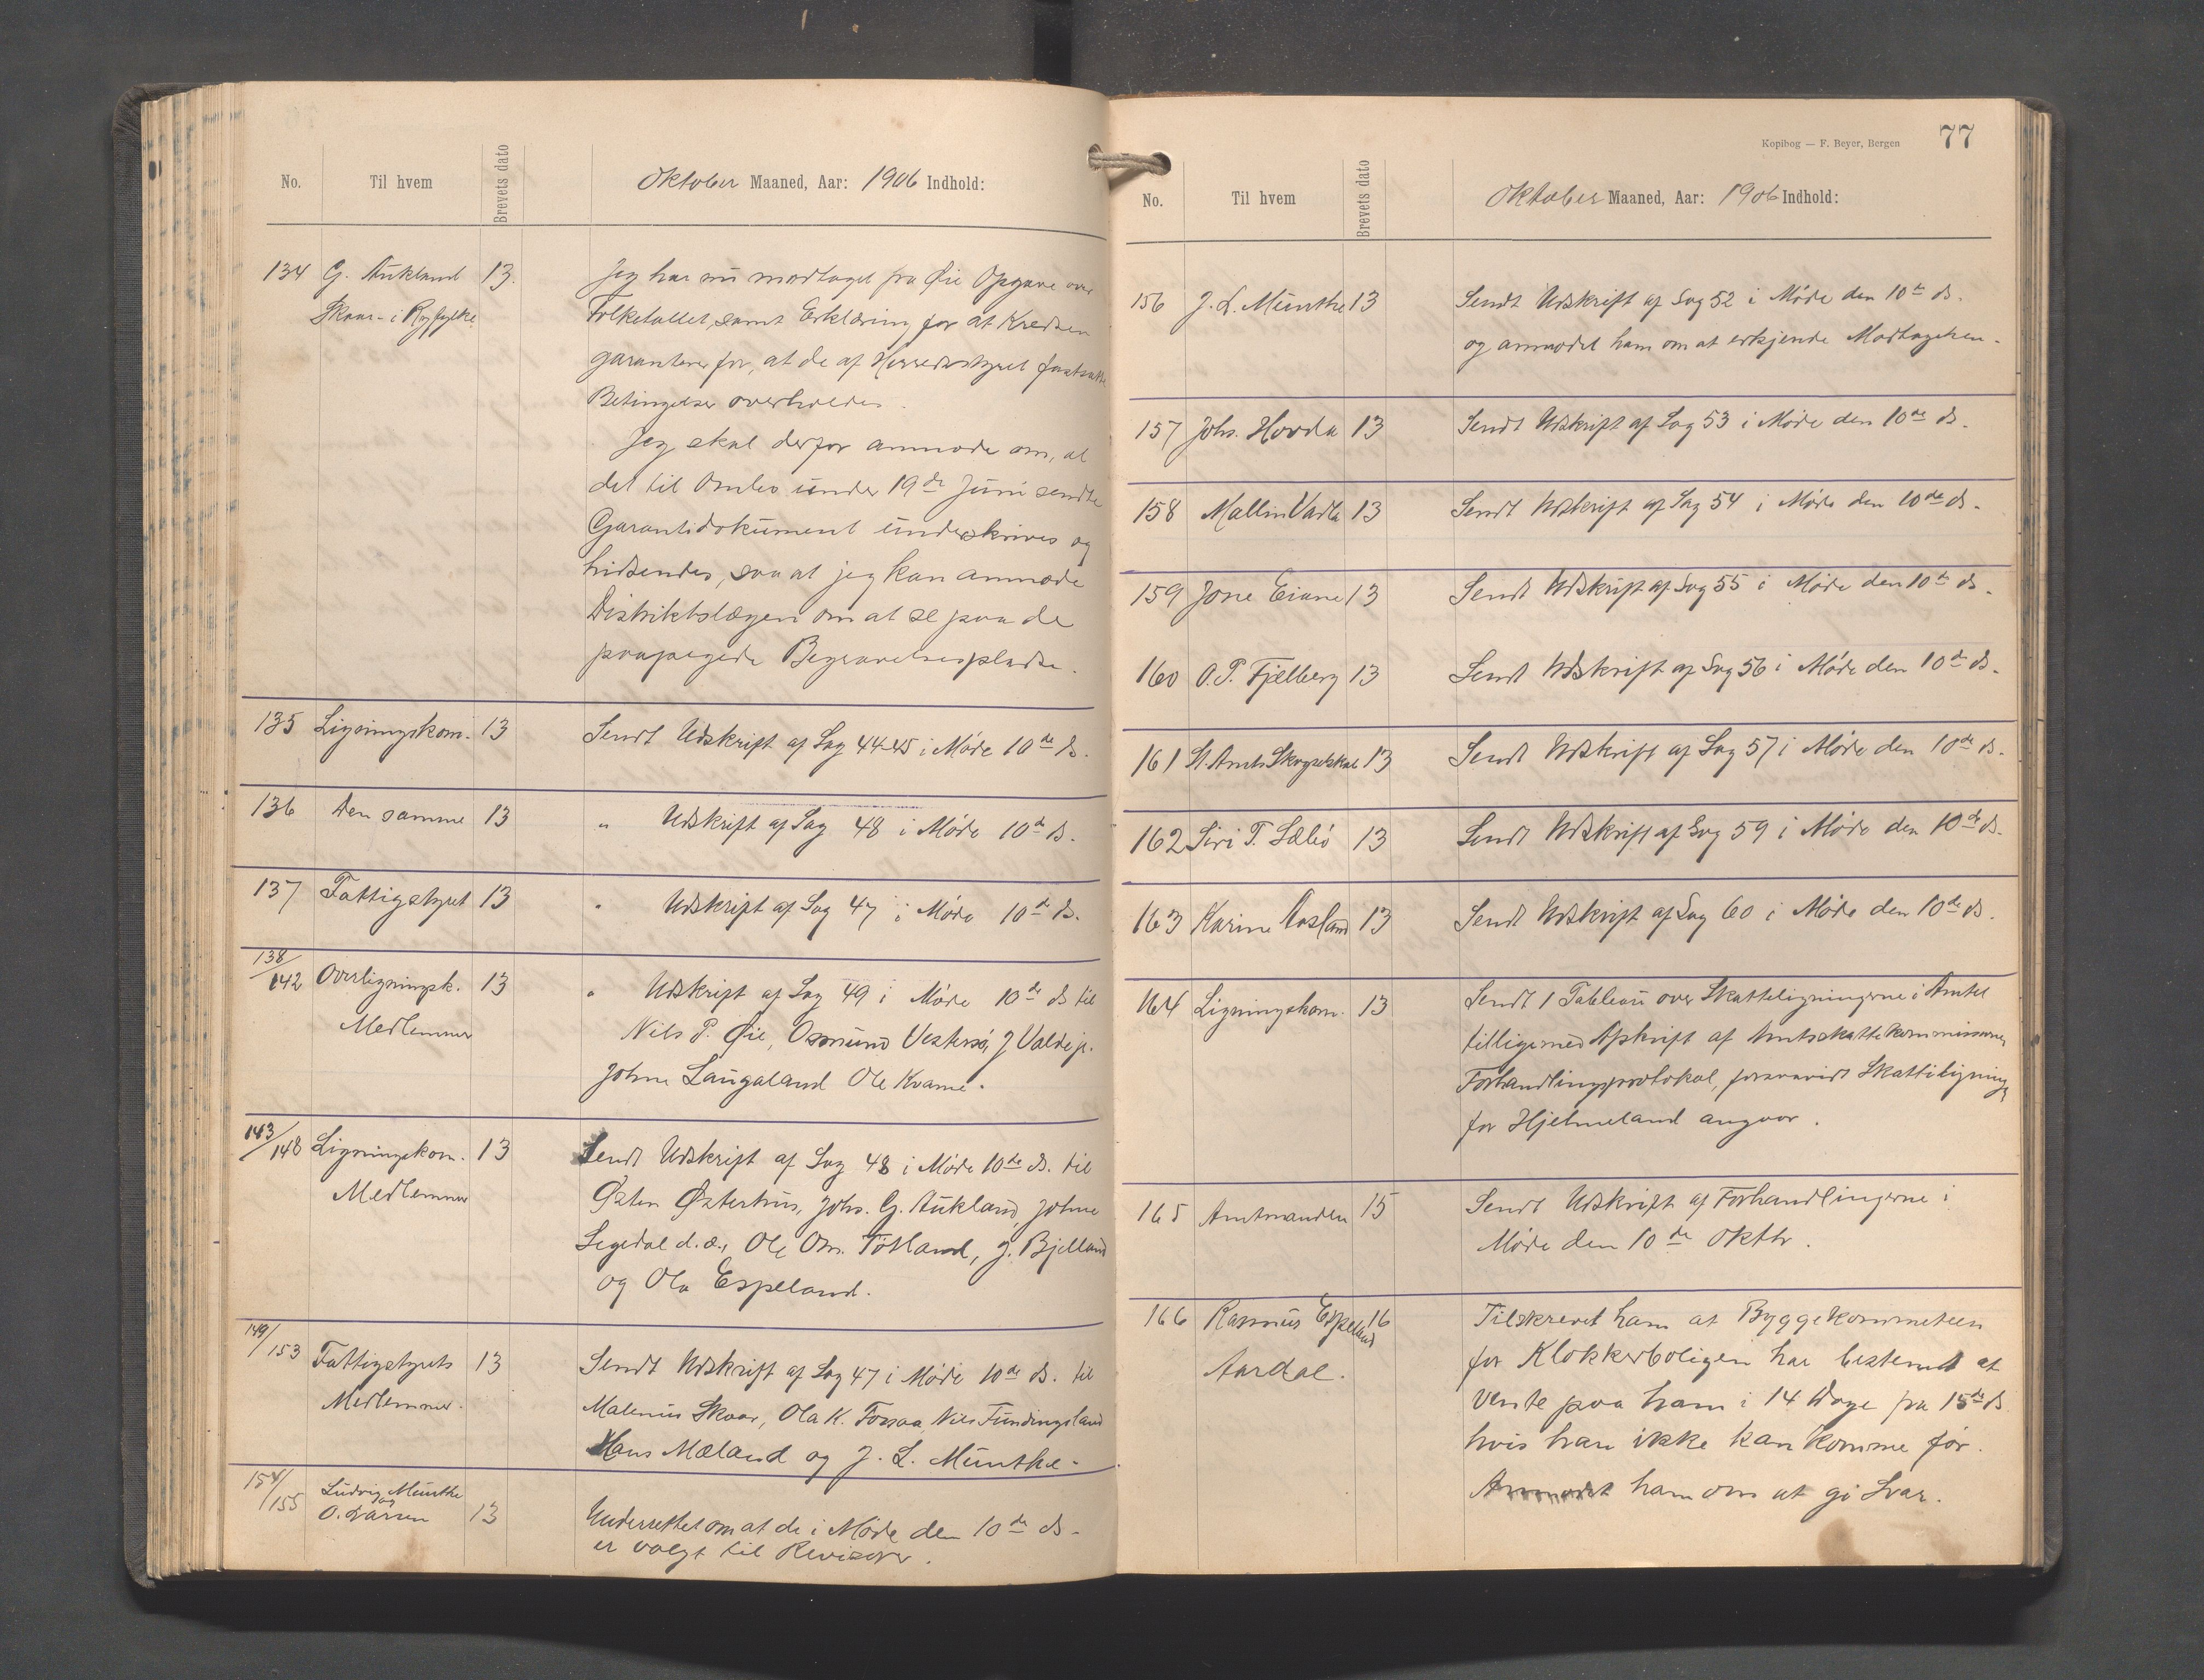 No. Til hvem Brevets dato Oktober Maaned, Aar: 1906 Indhold:
134 G. Aukland 13. Jeg har nu modtaget fra Øie Opgave over
Skaar i Ryfylke. Folketallet, samt Erklæring for at Kredsen
garanterer for, at de af Herredsstyret fastsatte
Betingelser overholdes.
Jeg skal derfor anmode om, at
det til Ombo under 19de Juni sendte
Garantidokument underskrives og
hidsendes, saa at jeg kan anmode
Distriktslægen om at se paa de
paapegede Begravelsespladse.
135 Ligningskom. 13 Sendt Udskrift af Sag 44-45 i Møde 10de ds.
136 Den samme 13 " Udskrift af Sag 48 i Møde 10de ds.
137 Fattigstyret 13 " Udskrift af Sag 47 i Møde 10de ds.
138/142 Overligningsk. 13 " Udskrift af Sag 49 i Møde 10de ds til
Medlemmer Nils P. Øie, Osmund Vestersø, J Valde jr.
Johne Laugaland Ole Kvame.
143/148 Ligningskom. 13 Sendt Udskrift af Sag 48 i Møde 10de ds. til
Medlemmer Østen Østerhus, Johs. G. Aukland, Johne
Segedal d.æ., Ole Om. Tøtland, J. Bjelland
og Ola Espeland.
149/153 Fattigstyrets 13 Sendt Udskrift af Sag 47 i Møde 10de ds. til
Medlemmer. Malenius Skaar, Ola K. Fossaa, Nils Fundingsland
Hans Mæland og J. L. Munthe.
154/155 Ludvig Munthe og
O. Larsen 13 Underrettet om at de i Møde den 10de ds.
er valgt til Revisorer.
Kopibog — F. Beyer, Bergen 77
No. Til hvem Brevets dato Oktober Maaned, Aar: 1906 Indhold:
156 J. L. Munthe 13 Sendt Udskrift af Sag 52 i Møde den 10de ds.
og anmodet ham om at erkjende Modtagelsen.
157 Johs. Hovda 13 Sendt Udskrift af Sag 53 i Møde den 10de ds.
158 Mallin Vadla 13 Sendt Udskrift af Sag 54 i Møde den 10de ds.
159 Jone Eiane 13 Sendt Udskrift af Sag 55 i Møde den 10de ds.
160 O. P. Fjelberg 13 Sendt Udskrift af Sag 56 i Møde den 10de ds.
161 St. Amts Skogselskab 13 Sendt Udskrift af Sag 57 i Møde den 10de ds.
162 Siri T. Sæbø 13 Sendt Udskrift af Sag 59 i Møde den 10de ds.
163 Karine Aasland 13 Sendt Udskrift af Sag 60 i Møde den 10de ds.
164 Ligningskom. 13 Sendt 1 Tableau over Skatteligningerne i Amtet
tilligemed Afskrift af Amtsskattekommissionens
Forhandlingsprotokol, forsaavidt Skatteligningen
for Hjelmeland angaar.
165 Amtmanden 15 Sendt Udskrift af Forhandlingerne i
Møde den 10de Oktbr.
166 Rasmus Espeland 16 Tilskrevet ham at Byggekommeteen
Aardal. for Klokkerboligen har bestemt at
vente paa ham i 14 Dage fra 15de ds
hvis han ikke kan komme før.
Anmodet ham om at gi Svar.